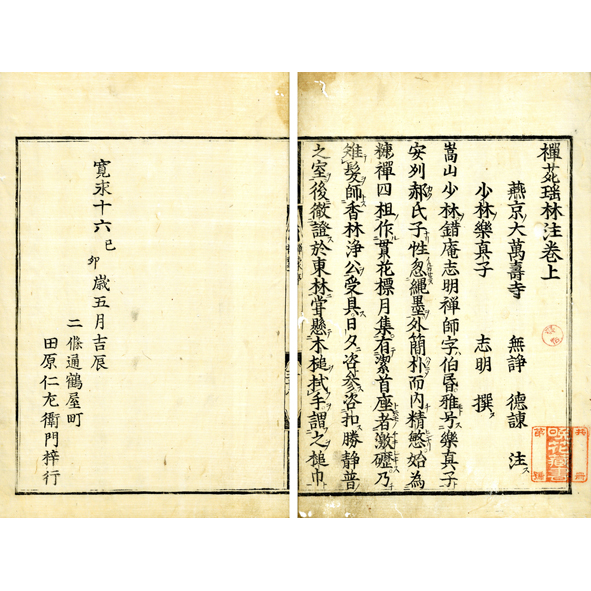 禪苑瑤林注卷上
燕京大萬壽寺 無諍 德諫 注ス
少林樂真子 志明 撰
嵩山少林錯庵志明禪師字伯昏雅号樂真子
安列郝氏子性忽繩墨外簡朴而内精慤始為
糠禪四祖作貫花標月集有潔首座者激礪乃
雉髮師香林淨公受具日久咨參咨扣勝静普
之室後徹證於東林甞懸木槌拭手謂之槌巾
寛永十六己卯歳五月吉辰
二條通鶴屋町
田原仁左衛門梓行